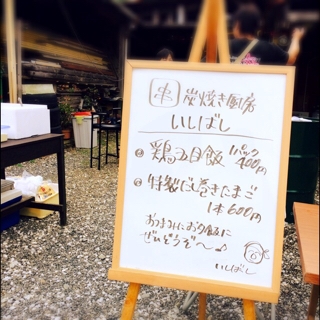 串 炭焼き厨房
いしばし
鶏五目飯 1パック 400円
特製だし巻きたまご
1本 600円
おつまみにお夕飯に
ぜひどうぞ〜♪
いしばし